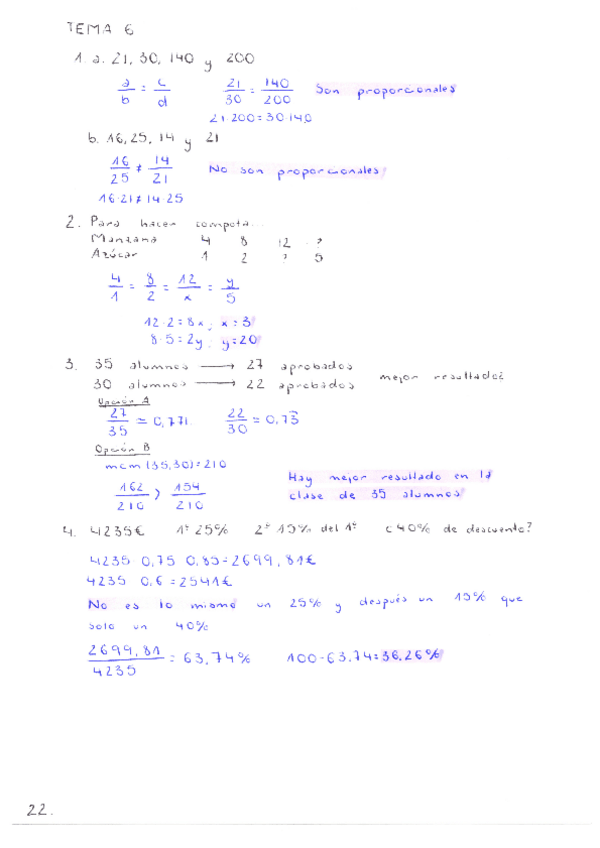 TEMA 6
1. a. 21, 30, 140 y 200
a/b = c/d   21/30 = 140/200   Son proporcionales
21·200=30·140
b. 16, 25, 14 y 21
16/25 ≠ 14/21   No son proporcionales
16·21≠14·25
2. Para hacer compota...
Manzana 4 8 12 ?
Azúcar 1 2 ? 5
4/1 = 8/2 = 12/x = y/5
12·2=8x; x=3
8·5=2y; y=20
3. 35 alumnos → 27 aprobados
30 alumnos → 22 aprobados   mejor resultado?
Opción A
27/35 = 0,771   22/30 = 0,73
Opción B
mcm (35,30)=210
162/210 > 154/210
Hay mejor resultado en la
clase de 35 alumnos
4. 4235€ 1º 25% 2º 15% del 1º c 40% de descuento?
4235 0,75 0,85=2699,81€
4235 0,6=2541€
No es lo mismo un 25% y después un 15% que
solo un 40%
2699,81/4235 = 63,74%   100-63,74=36,26%
22.